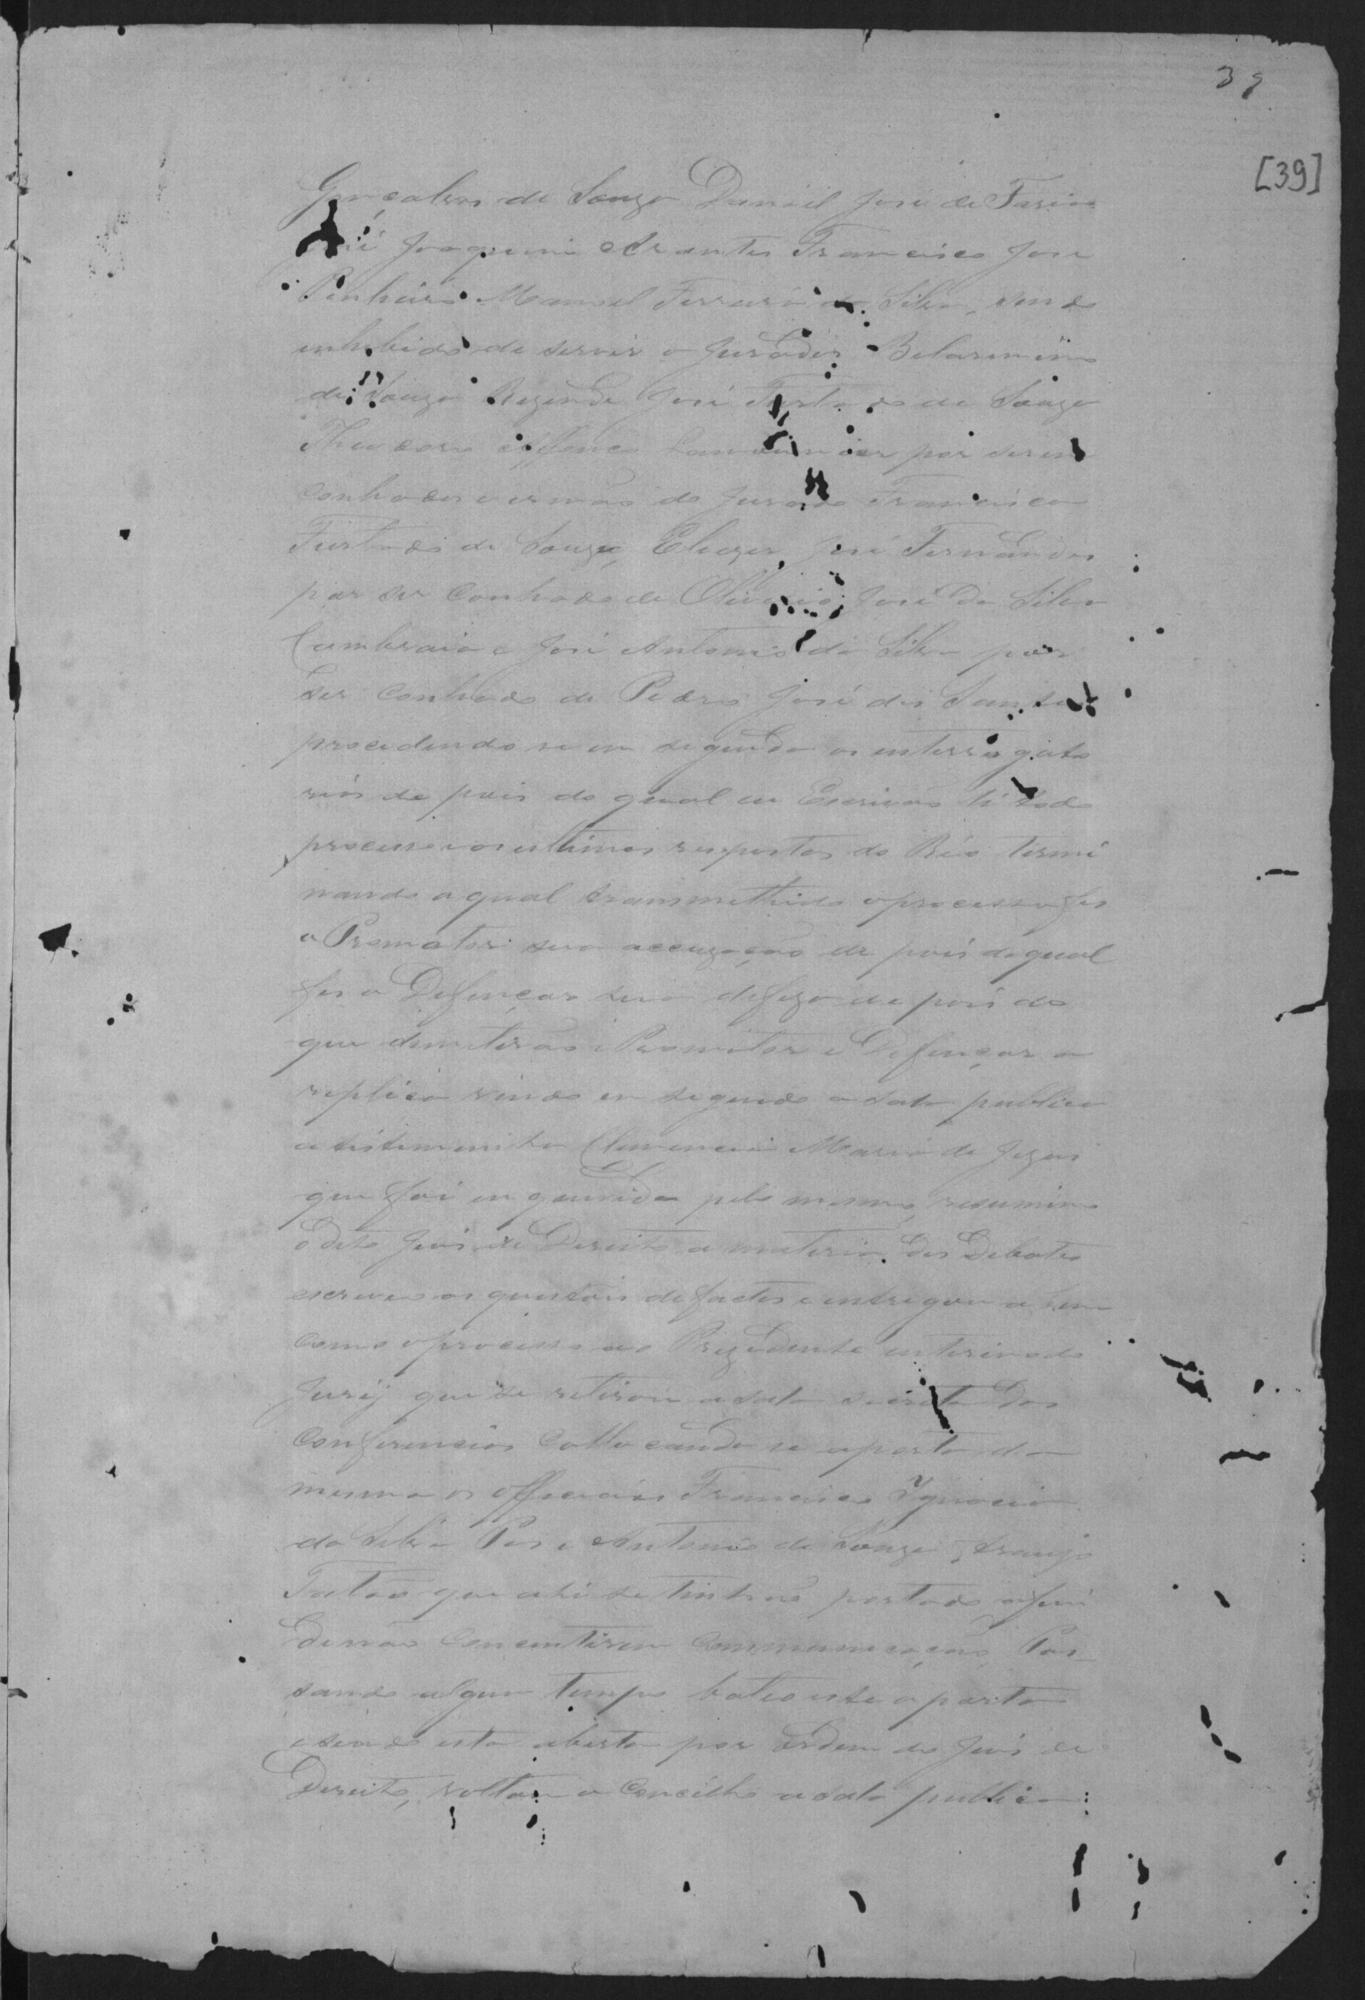 39
[39]
Gonçalves de Souza Daniel José de Faria
José Joaquim Arantes Francisco Jose
Pinheiro Manoel Ferreira da Silva, sendo
inhibidos de servir o Jurados Belarmino
de Souza Rezende José Furtado de Souza
Theodoro Affonço por serem
cunhados e irmão do Jurado Francisco
Furtado de Souza, Eliazer José Fernandes
por ser cunhado de Oliverio José da Silva
Cambraia e José Antonio da Silva por
ser cunhado de Pedro José dos Santos
procedendo se em seguida os interrogato
rios de pois do qual eu Escrivão li todo
processo e as ultimas respostas do Réo termi
nando a qual transmettido o processo fes
o Promotor sua accuzação de pois do qual
fes o Defençor sua defeza de pois do
que dimitirão o Promotor e Defençor a
replica vindo em seguida a sala publica
a testemunha Clemencia Maria de Jezus
que foi inquerida pelo mesmo, resumino
o dito Juis de Direito a materia dos Debates
escreveo os questões de factos e entregou a bem
como o processo ao Prezidente interino do
Jury que se retirou a sala secreta das
Conferencias collocando se a porta da
mesma os officiaes Francisco Ignacio
da Silva Pos e Antonio de Souza Araujo
Tatão que ahi se tinhão postado afim
de não concentirem communicação. Pas
sando algum tempo bateo este a porta
e sendo esta aberta por Ordem do Juis de
Direito, voltou o Concelho a sala publica